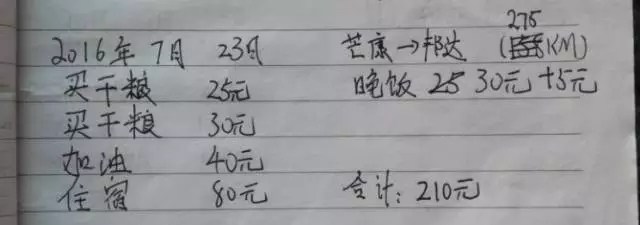 275
2016年7月 23日 芒康→邦达 (KM)
买干粮 25元 晚饭 25 30元+5元
买干粮 30元
加油 40元
住宿 80元 合计:210元